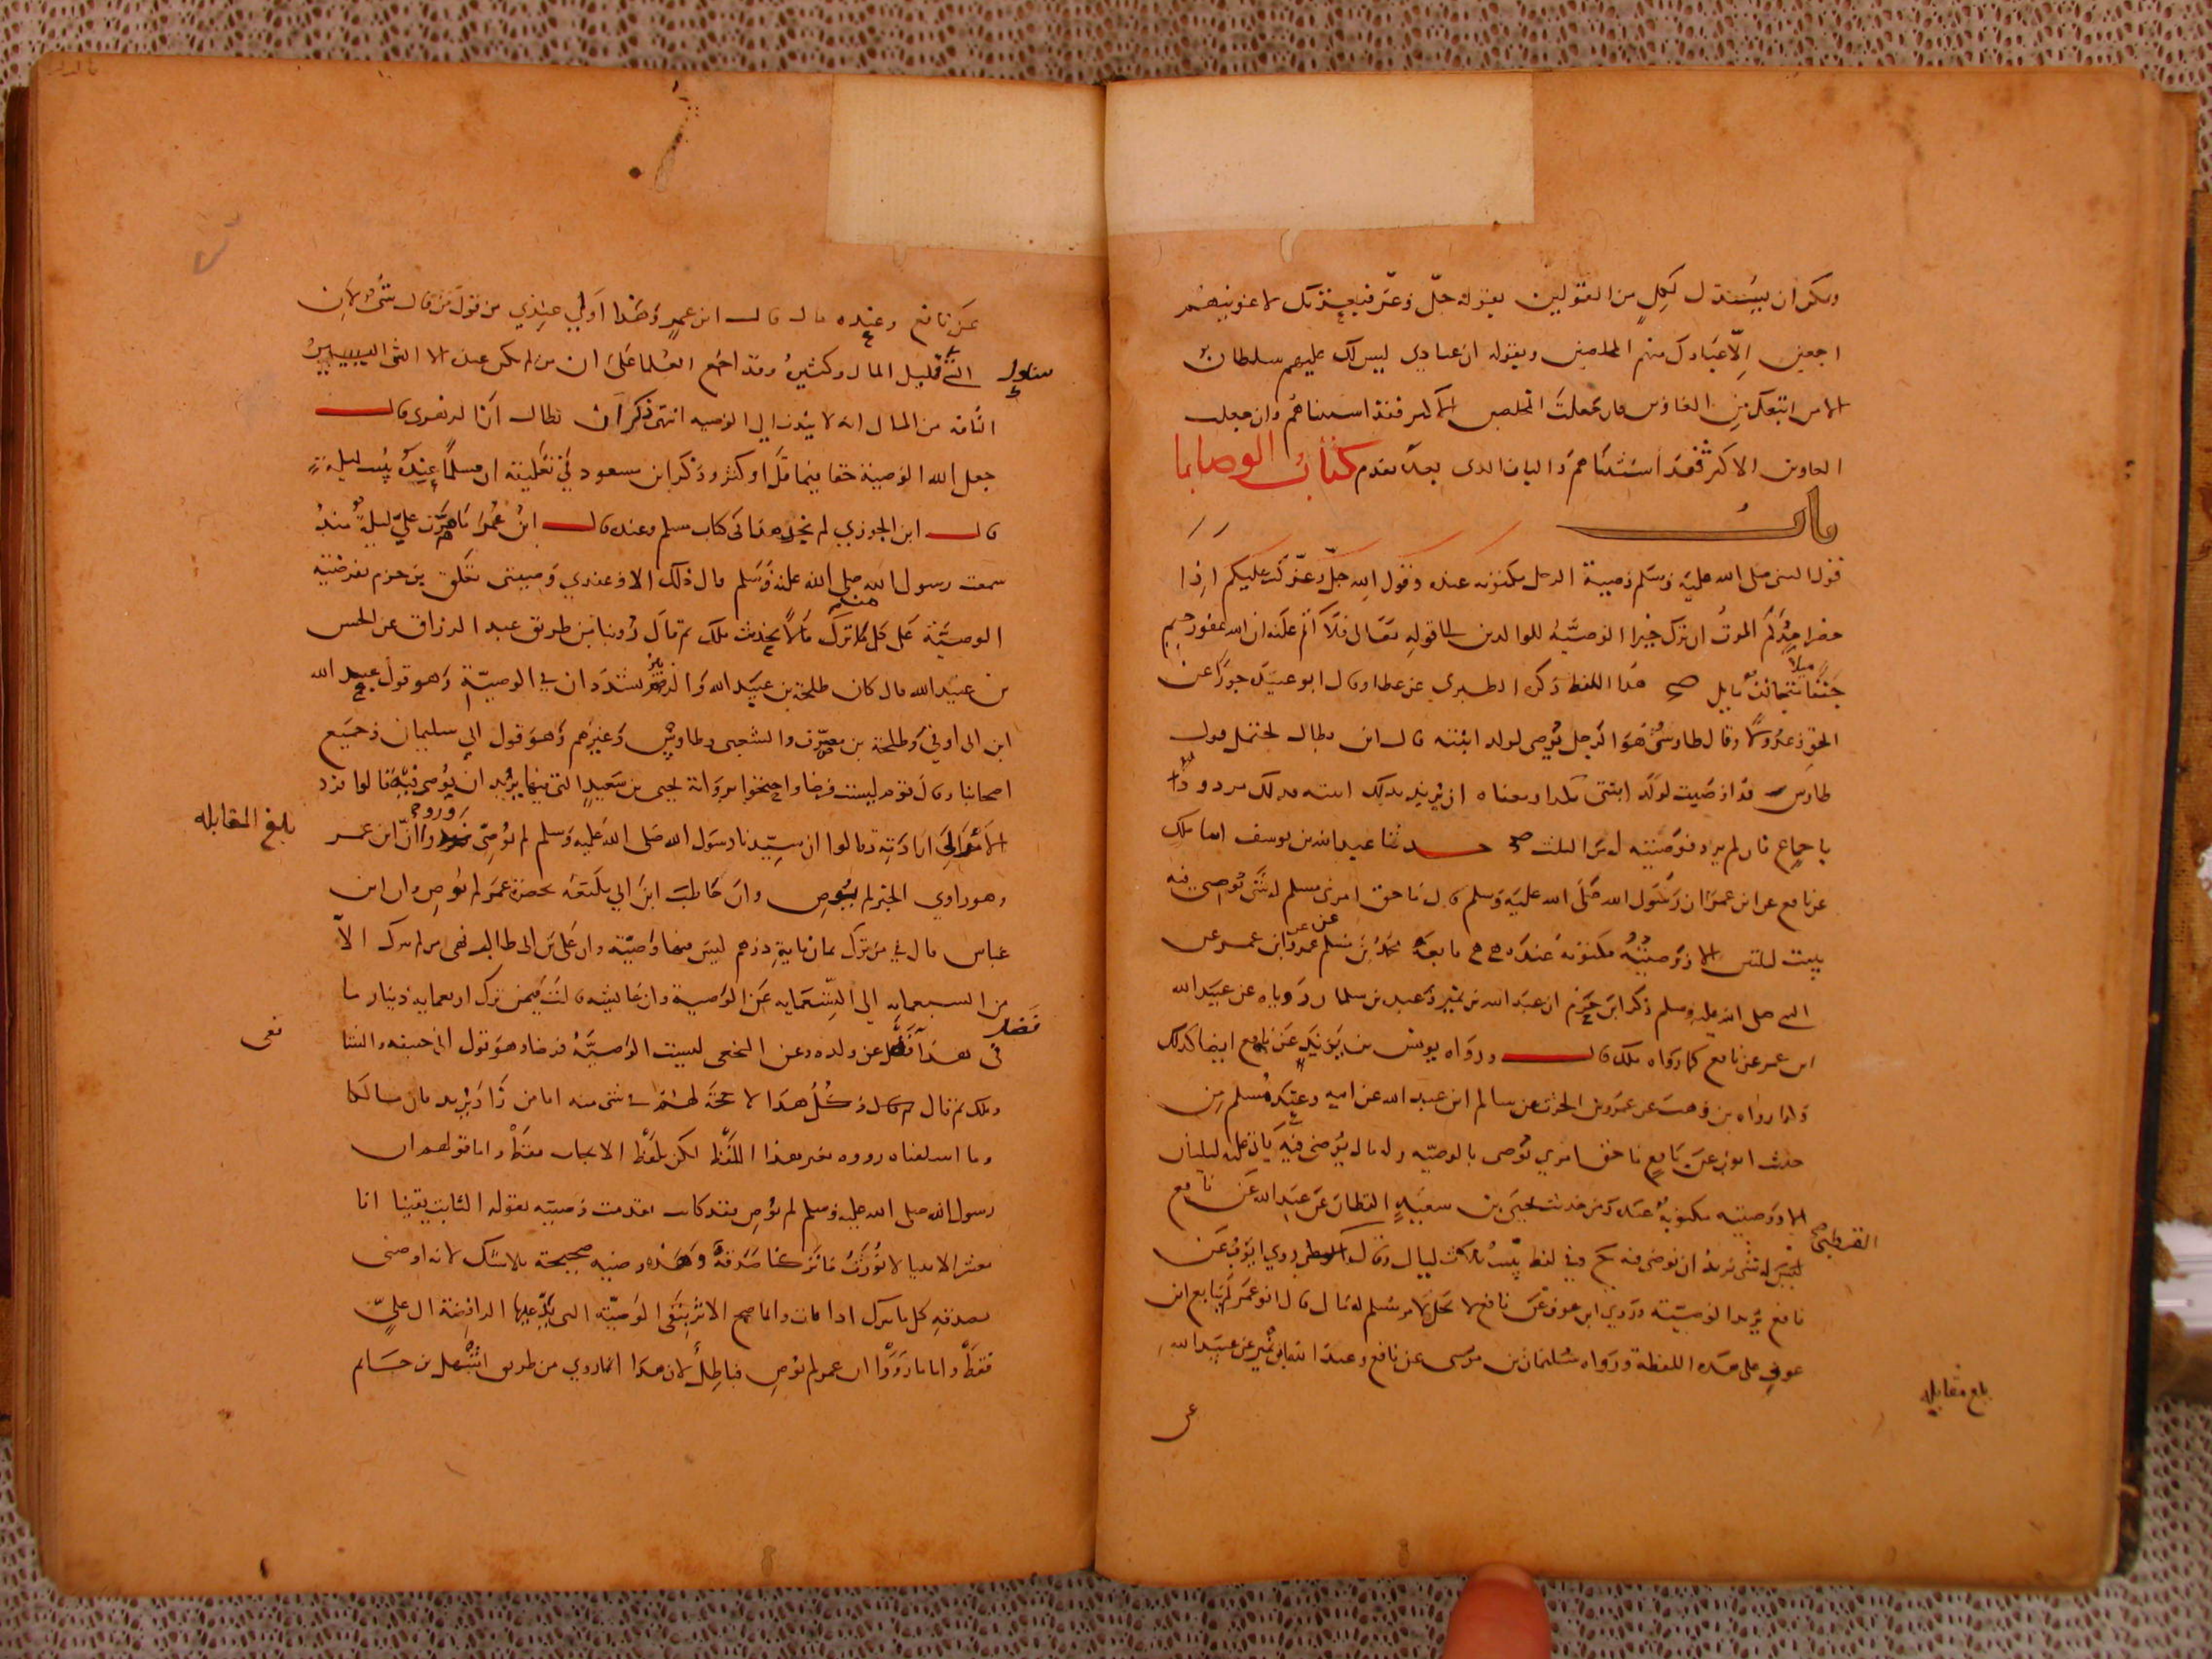 ويمكن ان يستدل لكل من القولين بقوله جلّ وعزّ فبعزتك لاغوينهم
اجمعين الّا عبادك منهم المخلصين وبقوله ان عبادي ليس لك عليهم سلطان
الا من اتبعك من الغاوين فان جعلت المخلصين الاكثر فقد استثناهم وان جعلت
الغاوين الاكثر فقد استثناهم والباب الذي بعده تقدم كتاب الوصايا
باب
قول النبي صلى الله عليه وسلم وصية الرجل مكتوبة عنده وقول الله جلّ وعزّ كتب عليكم اذا
حضر احدكم الموت ان ترك خيرا الوصية للوالدين الى قوله تعالى فلا اثم عليه ان الله غفور رحيم
جنفا ميلا متجانف مايل هذا اللفظ ذكره الطبري عن عطا وقال ابو عبيدة جورا عن
الحق وعدولا وقال طاوس هو الرجل يوصي لولد ابنته قال ابن بطال يحتمل قول
طاوس قد اوصيت لولد ابنتي بكذا ومعناه ان يريد بذلك ابنته فذلك مردود
باجماع فان لم يرد فوصيته من الثلث حدثنا عبد الله بن يوسف انا ملك
عن نافع عن ابن عمر ان رسول الله صلى الله عليه وسلم قال ما حق امرئ مسلم له شئ يوصي فيه
يبيت ليلتين الا ووصيته مكتوبة عنده تابعه محمد بن مسلم عن عمرو عن ابن عمر عن
النبي صلى الله عليه وسلم ذكر ابن حزم ان عبد الله بن نمير وعبده بن سليمان روياه عن عبيد الله
ابن عمر عن نافع كما رواه ملك قال ورواه يونس بن يزيد عن نافع ايضا كذلك
وكذا رواه بن وهب عن عمرو بن الحرث عن سالم ابن عبد الله عن ابيه وعند مسلم من
حديث ايوب عن نافع ما حق امرئ يؤمن بالوصية وله مال يوصي فيه ياتي عليه ليلتان
الا ووصيته مكتوبة عنده ومن حديث يحيى بن سعيد القطان عن عبد الله عن نافع
له شئ يريد ان يوصي فيه وفي لفظ يبيت ثلاث ليال وقال روي ايوب عن
القرطبي
نافع يريد الوصية وروي ابن عون عن نافع لا يحل لامرئ مسلم له مال قال ابو عمر لم يتابع ابن
عون على هذه اللفظة ورواه سليمان بن موسى عن نافع وعند ابن نمير عن عبيد الله
بلغ مقابلة
عن
عن نافع وعنده مال قال ابن عمر وهذا اولى عندي من قول من قال شئ لان
الشئ قليل المال وكثيره وقد اجمع العلما على ان من لم يكن عنده الا الشئ اليسير
التافه من المال انه لا يندب الى الوصية انتهى ذكر ان بطال ان الزهري قال
جعل الله الوصية حقا فيما قل او كثر وذكر ابن مسعود في تعليقه ان مسلما عنده يبيت ليلة
قال ابن الجوزي لم نجد هذا في كتاب مسلم وعنده قال ابن عمر ما مرت علي ليلة منذ
سمعت رسول الله صلى الله عليه وسلم قال ذلك الا وعندي وصيتي تعلق بن حزم بفرضية
الوصية على كل من ترك مالا بحديث ملك ثم قال روينا من طريق عبد الرزاق عن الحسن
بن عبيد الله قال كان طلحة بن عبيد الله والزبير يشددان في الوصية وهو قول عبد الله
ابن ابي اوفى وطلحة بن مصرف والشعبي وطاوس وغيرهم وهو قول ابي سليمان وجميع
اصحابنا وقال قوم ليست فرضا واحتجوا برواية يحيى بن سعيد التي فيها يريد ان يوصي فيه قالوا فرد
بلغ المقابلة
الامر الى ارادته وقالوا ان سيدنا رسول الله صلى الله عليه وسلم لم يوص ورووا ان ابن عمر
وهو راوي الخبر لم يوص وان حاطب ابن ابي بلتعة بحضرة عمر لم يوص وان ابن
عباس قال في من ترك ثمان ماية درهم ليس فيها وصية وان علي بن ابي طالب نهى من لم يترك الا
من السبعماية الى التسعماية عن الوصية وان عائشة قالت فيمن ترك اربعماية دينار ما
في هذا فضل عن ولده وعن النخعي ليست الوصية فرضا وهو قول ابي حنيفة والشا
فعي
وملك ثم قال وكل هذا لا حجة لهم في شئ منه اما من زاد يريد فان مالكا
وما اسلفناه رووه بغير هذا اللفظ لكن بلفظ الايجاب فقط واما قولهم ان
رسول الله صلى الله عليه وسلم لم يوص فقد كانت تقدمت وصيته بقوله الثابت يقينا انا
معشر الانبيا لا نورث ما تركنا صدقة وهذه وصية صحيحة بلا شك لانه اوصى
بصدقة كل ما يترك اذا مات وانما صح الاثر بنفي الوصية التي تدعيها الرافضة الى عليّ
فقط واما ما رووا ان عمر لم يوص فباطل لان هذا انما روي من طريق اشهل بن حاتم